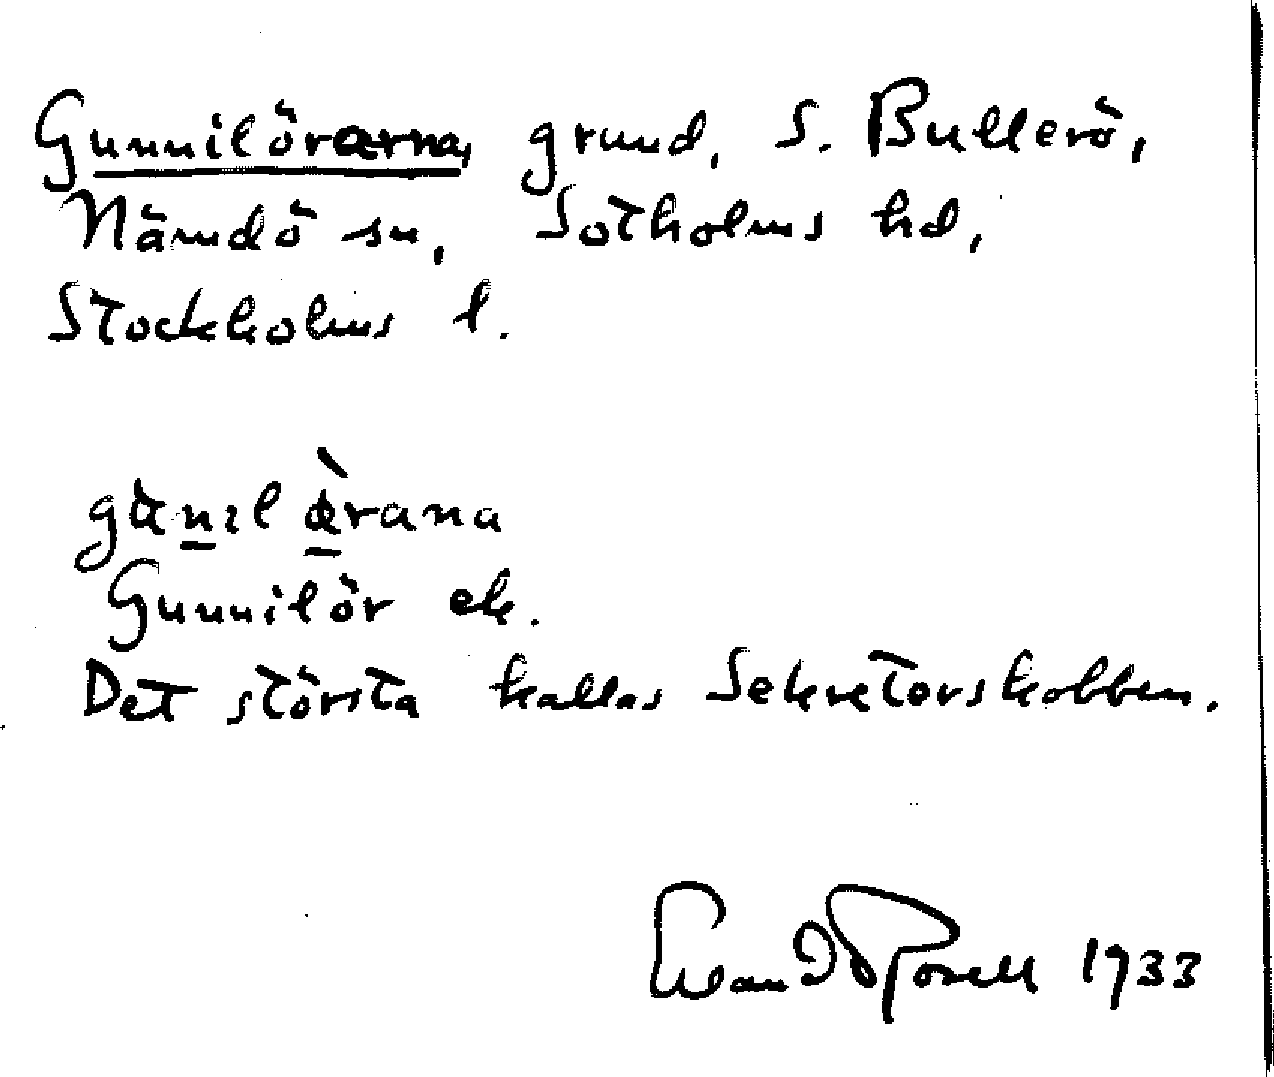 Gunnilörarna, grund, S. Bullerö,
Nämdö sn, Sotholms hd,
Stockholms l.
Gunnilör ek.
Det största kallas Sekreterskobben.
1933